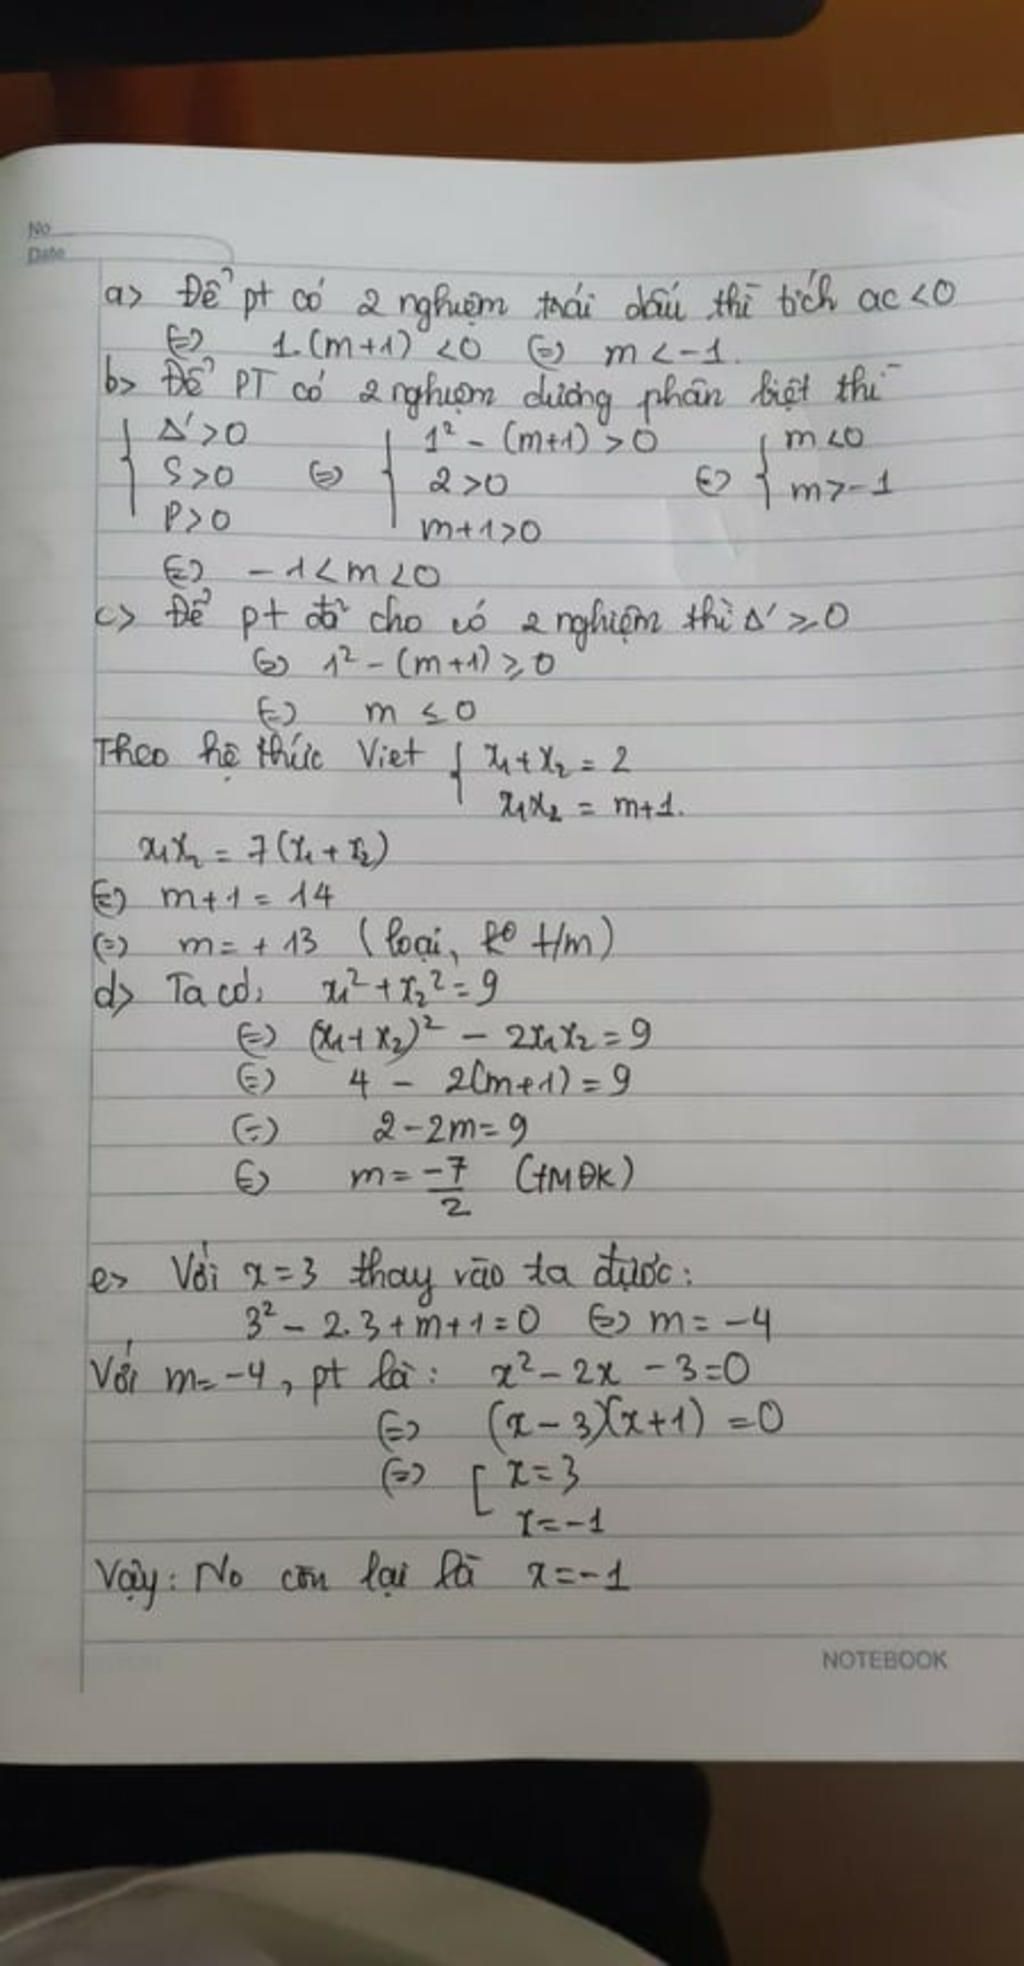 No
Date
a> Để pt có 2 nghiệm trái dấu thì tích ac <0
(=) 1.(m+1) <0 (=) m < -1.
b> Để PT có 2 nghiệm dương phân biệt thì
{ Δ' >0 (=) { 1² - (m+1) > 0 (=) { m <0
S >0 2 >0 m > -1
P >0 m+1 >0
(=) -1 < m < 0
c> Để pt đã cho có 2 nghiệm thì Δ' ≥ 0
(=) 1² - (m+1) ≥ 0
(=) m ≤ 0
Theo hệ thức Viet { x₁ + x₂ = 2
x₁x₂ = m+1.
x₁x₂ = 7(x₁ + x₂)
(=) m+1 = 14
(=) m = + 13 (loại, k⁰ t/m)
d> Ta có: x₁² + x₂² = 9
(=) (x₁+ x₂)² - 2x₁x₂ = 9
(=) 4 - 2(m+1) = 9
(=) 2 - 2m = 9
(=) m = -7/2 (TMĐK)
e> Với x = 3 thay vào ta được:
3² - 2.3 + m + 1 = 0 (=) m = -4
Với m = -4, pt là: x² - 2x - 3 = 0
(=) (x - 3)(x + 1) = 0
(=) [ x = 3
x = -1
Vậy: No còn lại là x = -1
NOTEBOOK